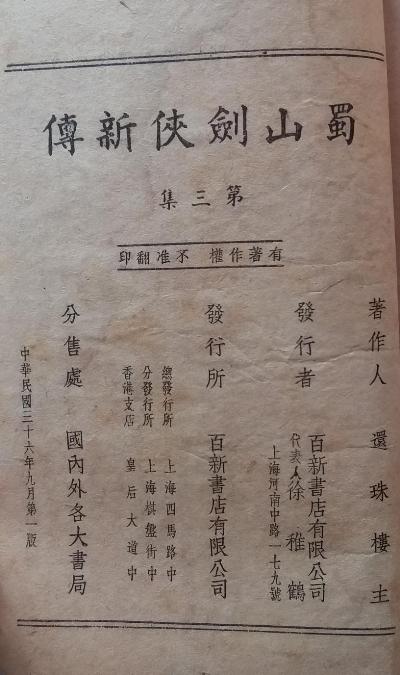 蜀山劍俠新傳
第三集
有著作權 不准翻印
著作人 還珠樓主
發行者 百新書店有限公司
代表人徐稚鶴
上海河南中路一七九號
發行所 百新書店有限公司
總發行所 上海四馬路中
分發行所 上海棋盤街中
香港支店 皇后大道中
分售處 國內外各大書局
中華民國三十六年九月第一版